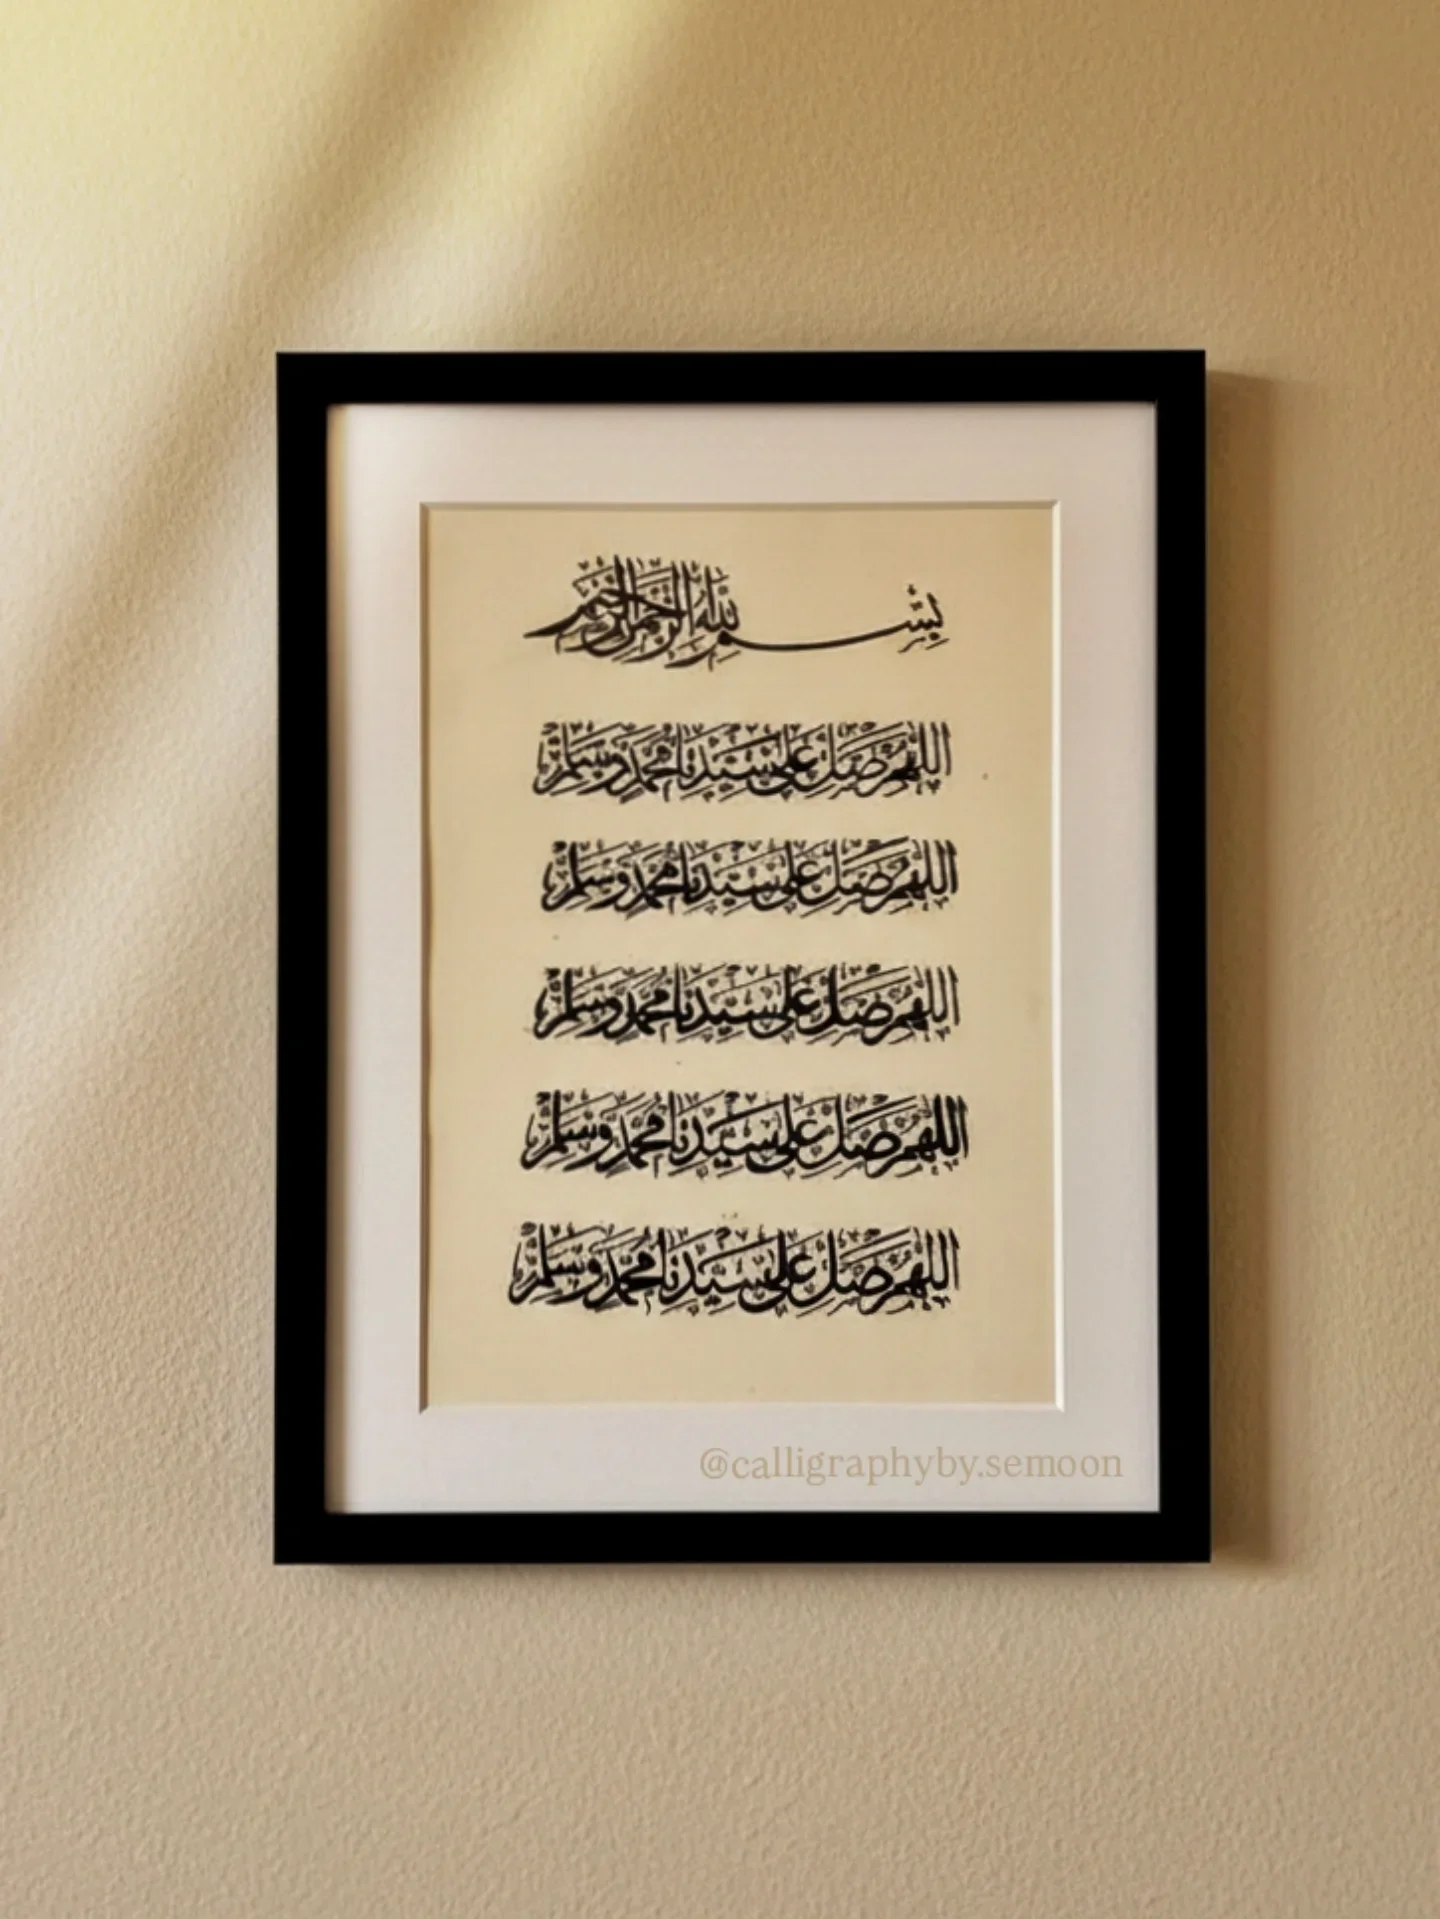 بِسْمِ اللهِ الرَّحْمٰنِ الرَّحِيْمِ
اللّٰهُمَّ صَلِّ عَلٰى سَيِّدِنَا مُحَمَّدٍ وَسَلِّمْ
اللّٰهُمَّ صَلِّ عَلٰى سَيِّدِنَا مُحَمَّدٍ وَسَلِّمْ
اللّٰهُمَّ صَلِّ عَلٰى سَيِّدِنَا مُحَمَّدٍ وَسَلِّمْ
اللّٰهُمَّ صَلِّ عَلٰى سَيِّدِنَا مُحَمَّدٍ وَسَلِّمْ
اللّٰهُمَّ صَلِّ عَلٰى سَيِّدِنَا مُحَمَّدٍ وَسَلِّمْ
@calligraphyby.semoon